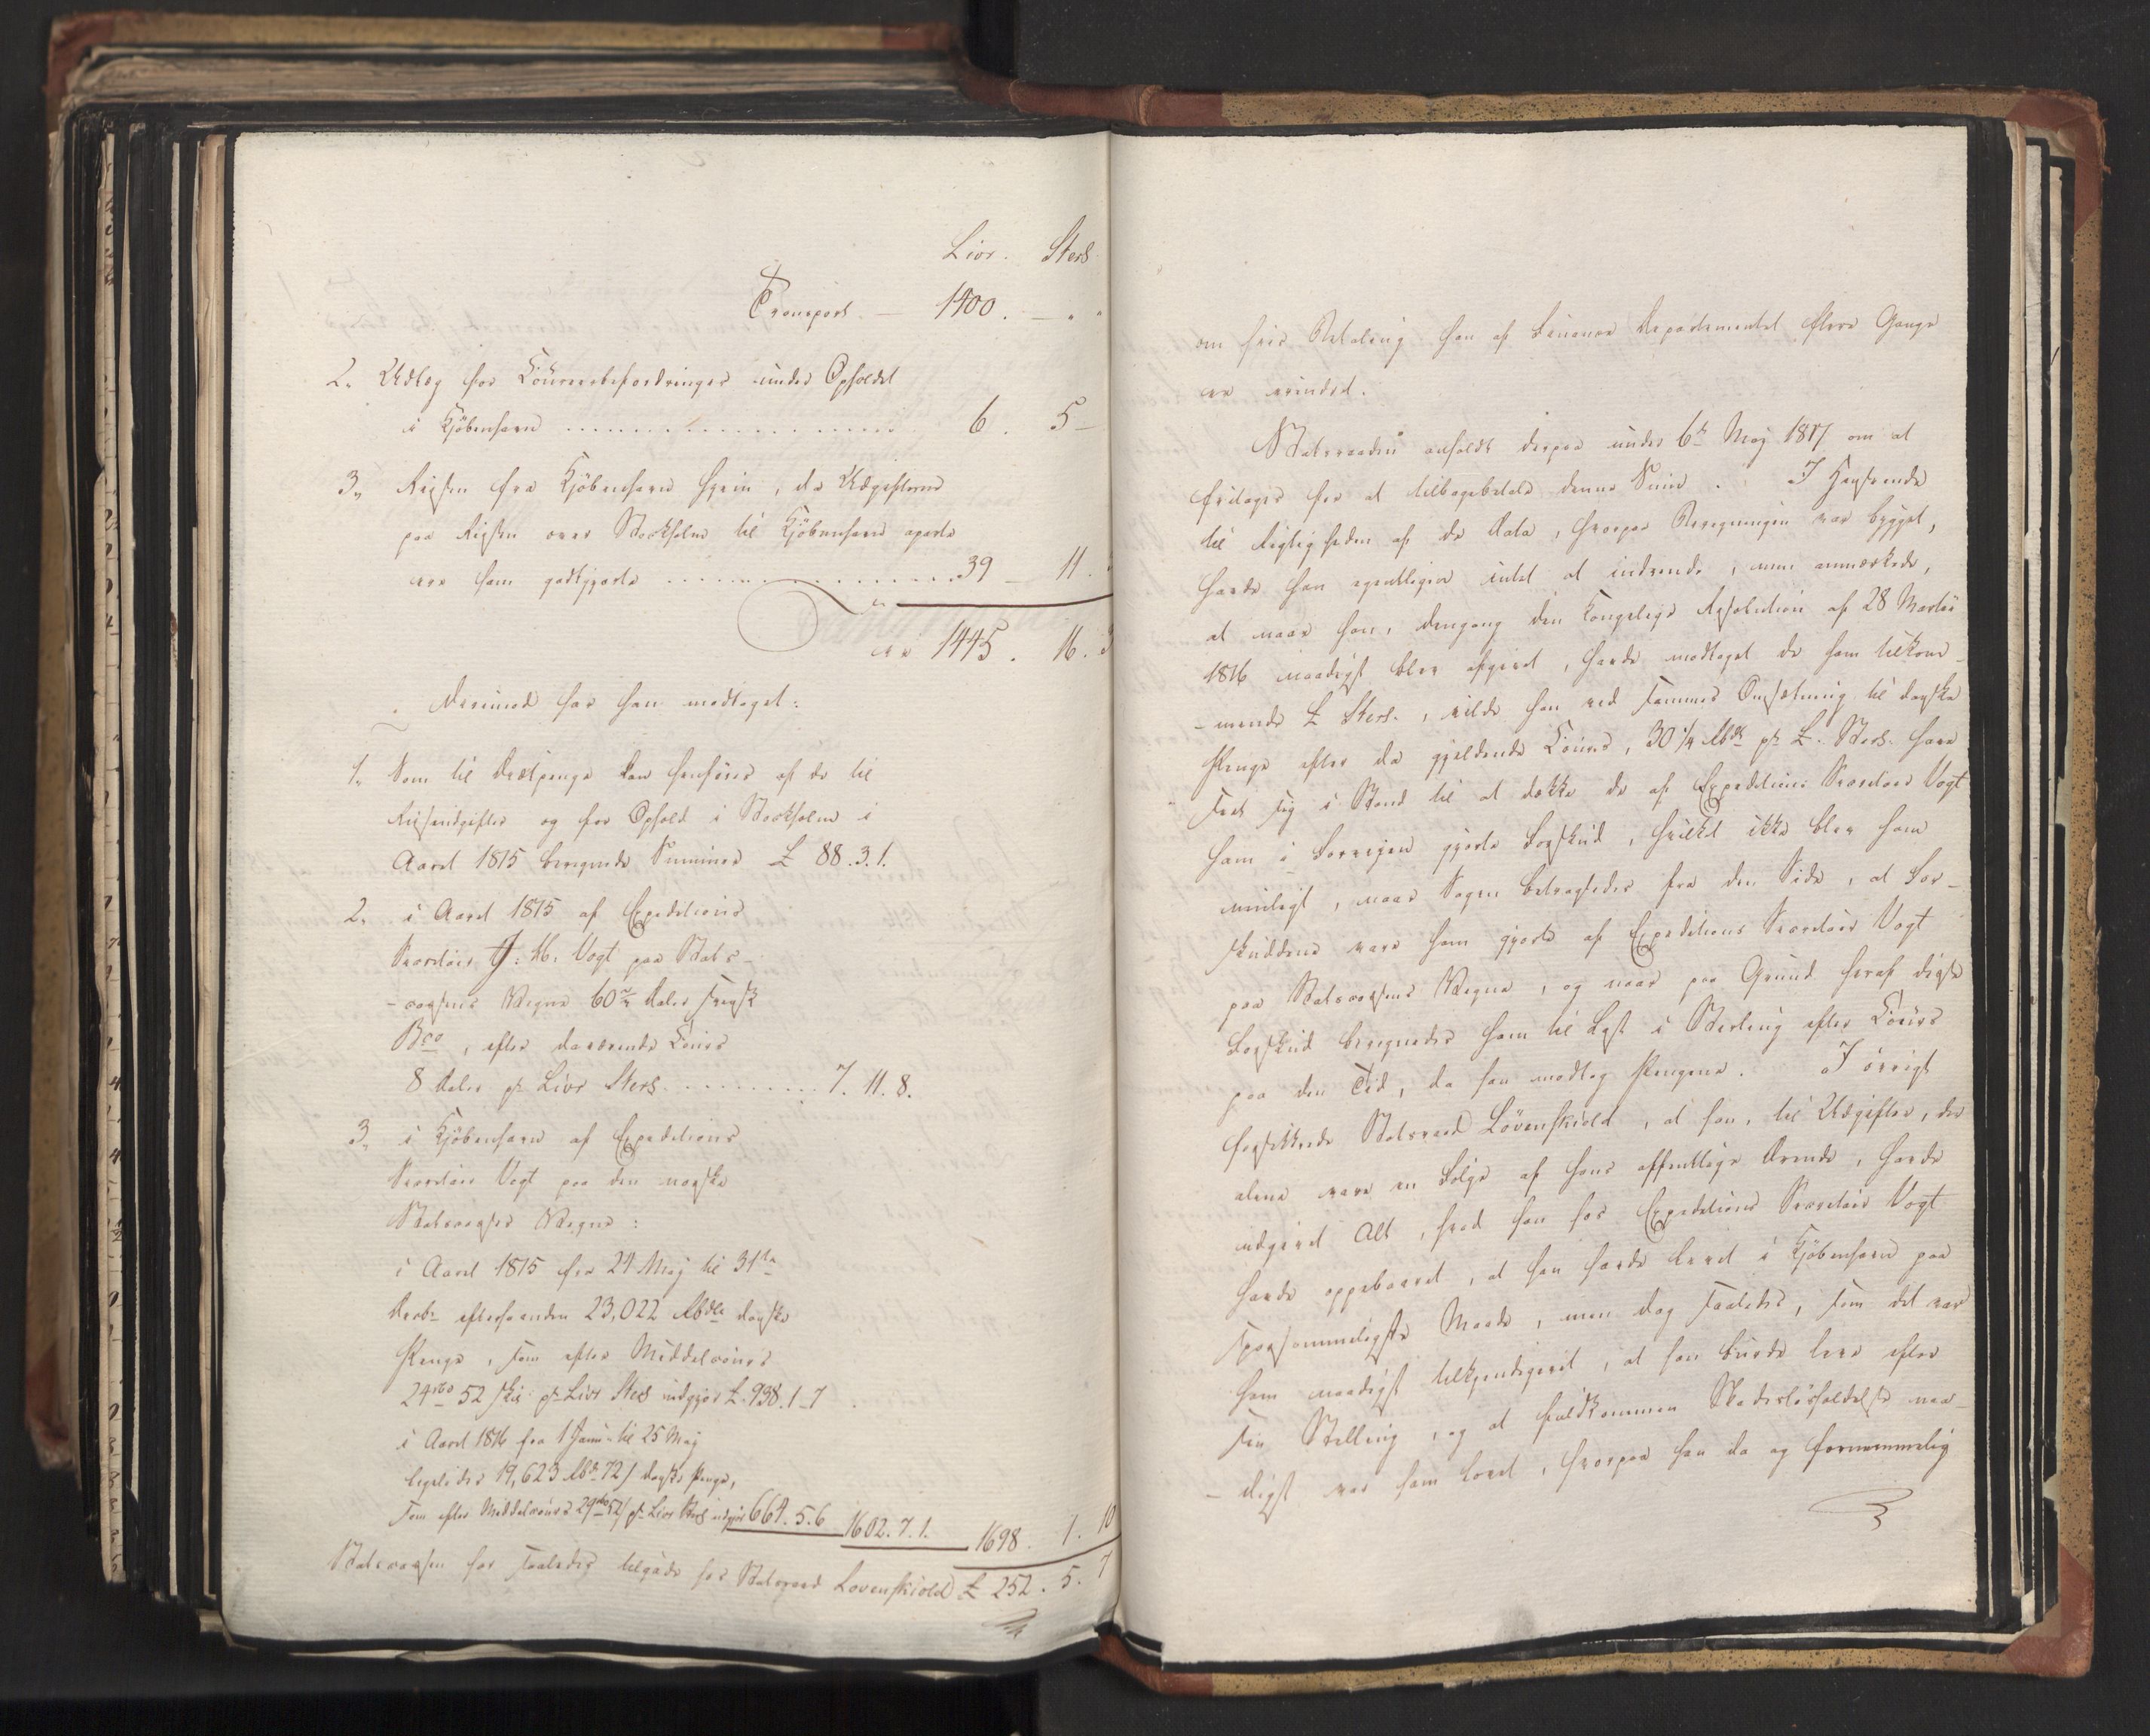 Livr. Sterl
Transport — 1400. — " "
2. Udlæg for Coureerbefordringer under Opholdet
i Kjöbenhavn .................... 6. 5 —
3, Reisen fra Kjöbenhavn hjem, da Udgifterne
paa Reisen over Stockholm til Kjöbenhavn aparte
ere ham godtgjorte ................ 39 — 11.
er 1445. 16. 3
Derimod har han modtaget:
1, Som til Diætpenge kan henføres af de til
Reiseudgifter og for Ophold i Stockholm i
Aaret 1815 beregnede Summer £ 88. 3. 1.
2, i Aaret 1815 af Expeditions
Secretair J: H: Vogt paa Stats-
-cassens Vegne 60 Daler svensk
Bco, efter daværende Cours
8 Daler pr Livr Sterl. ......... 7. 11. 8.
3, i Kjöbenhavn af Expeditions
Secretair Vogt paa den norske
Statscasses Vegne:
i Aaret 1815 fra 24 Maj til 31te
Decbr efterhaanden 23,022 Rbdlr danske
Penge, som efter Middelcours
24 rbd 52 skil. pr Livr Sterl udgjör £. 938. 1. 7
i Aaret 1816 fra 1 Janu. til 25 Maj
ligeledes 19,623 Rbd. 72 s danske Penge,
som efter Middelcours 29 rbd 52 s pr Livr Sterl udgjör 664. 5. 6 1602. 7. 1. 1698. 1. 10
Statscassen har saaledes tilgode hos Statsraad Lövenskiold £ 252. 5. 7
om hvis Betaling han af Finance Departementet flere Gange
er erindret.
Statsraaden anholdt derpaa under 6te Maj 1817 om at
fritages for at tilbagebetale denne Sum. I Henseende
til Rigtigheden af de Data, hvorpaa Beregningen var bygget,
havde han egentligen intet at indvende, men anmærkede,
at naar han, dengang den Kongelige Resolution af 28 Martii
1816 naadigst blev afgivet, havde modtaget de ham tilkom-
-mende £ Sterl., vilde han ved sammes Omsætning til danske
Penge efter da gjeldende Cours, 30 1/4 Rbdlr pr £. Sterl. have
seet sig i Stand til at dække de af Expeditions Secretair Vogt
ham i Forveien gjorte Forskud, hvilket ikke blev ham
muligt, naar Sagen betragtedes fra den Side, at For-
skuddene vare ham gjorte af Expeditions Secretair Vogt
paa Statscassens Vegne, og naar paa Grund heraf disse
Forskud beregnedes ham til Last i Sterling efter Cours
paa den Tid, da han modtog Pengene. I övrigt
forsikrede Statsraad Lövenskiold, at han, til Udgifter, der
alene vare en Fölge af hans offentlige Ærende, havde
udgivet Alt, hvad han hos Expeditions Secretair Vogt
havde oppebaaret, at han havde levet i Kjöbenhavn paa
sparsommeligste Maade, men dog saaledes, som det var
ham naadigst tilkjendegivet, at han burde leve efter
sin Stilling, og at fuldkommen Skadeslösholdelse naa-
-digst var ham lovet, hvorpaa han da og fornemmelig